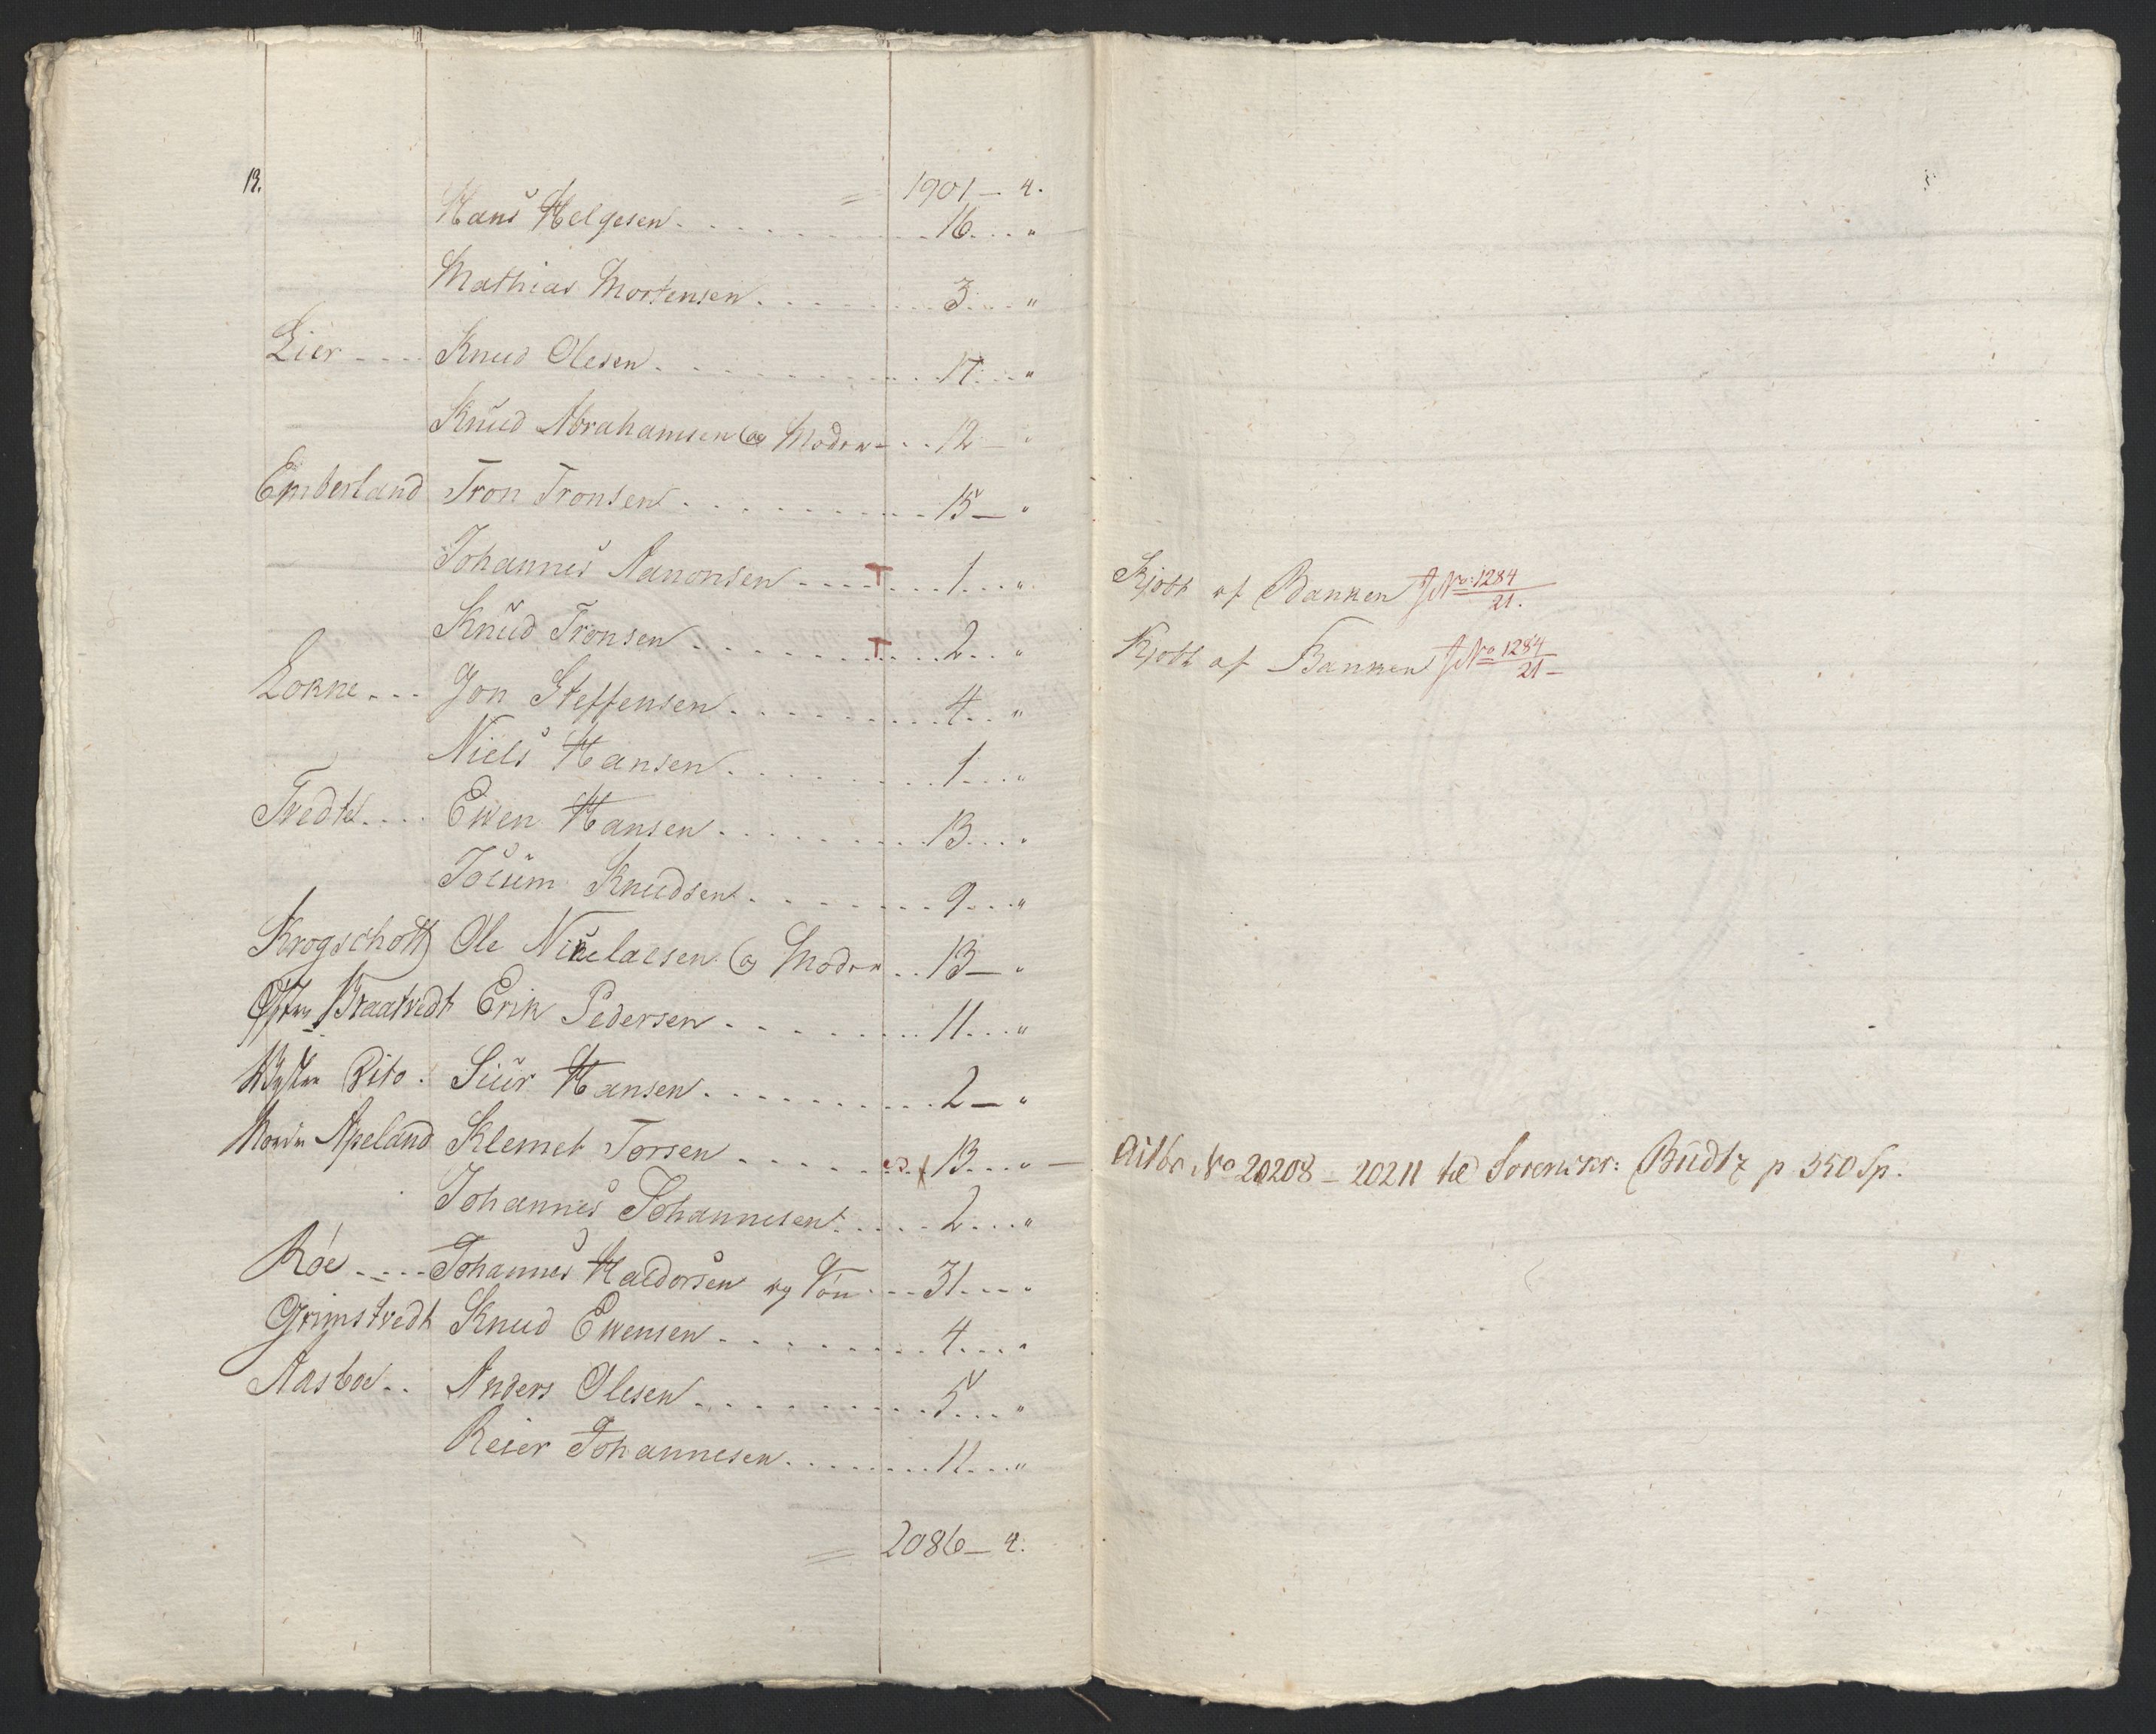 13.
= 1901 – 4.
Hans Helgesen . . . . . 16. . . "
Mathias Mortensen . . . . . 3. . . "
Lier - - - Knud Olesen . . . . . 17. . . "
Knud Abrahamsen og Moder - . . 12 – "
Emberland Tron Tronsen . . . . . 15 – "
Johannes Aanonsen - - - - T . . . 1. . . "
Kjøbt af Banken No: 1284/21.
Knud Tronsen . . . . . T . . . 2. . . "
Kjøbt af Banken No 1284/21 –
Lokne - - - Jon Steffensen . . . . . 4. . . "
Niels Hansen . . . . . 1. . . "
Tvedte . . . . Ewen Hansen . . . . . 13. . . "
Joeum Knudsen . . . . . 9. . . "
Krogschott Ole Nikelaesen og Moder . . 13 – "
Østre Traatvedt Erik Pedersen . . . . . 11. . . "
Rito . Siur Hansen . . . . . 2 – "
Apeland Klemet Torsen . . . . . 13. . . " –
No 20208 – 20211 til Sorenskr: Büdtz p 350 Sp.
Johannes Johannesen . . . . . 2. . . "
Røe - - - - Johannes Haldorsen og Søn . . . 31. . . "
Grimstvedt Knud Ewensen . . . . . 4. . . "
Aasboe . . Anders Olesen . . . . . 5. . . "
Reier Johannesen . . . . . 11. . . "
= 2086 – 4.